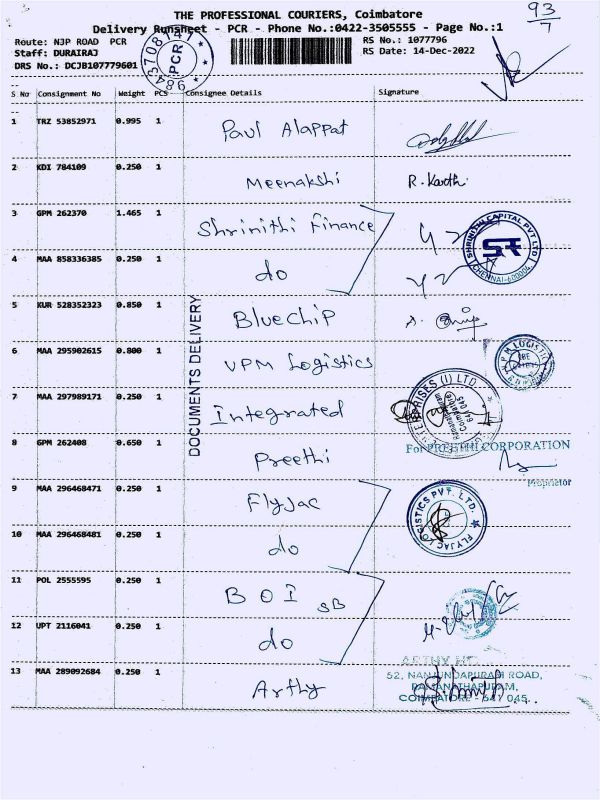 THE PROFESSIONAL COURIERS, Coimbatore
93/7
Delivery Runsheet - PCR - Phone No.:0422-3505555 - Page No.:1
Route: NJP ROAD PCR
RS No.: 1077796
Staff: DURAIRAJ
RS Date: 14-Dec-2022
DRS No.: DCJB107779601
9843708141
PCR
S No Consignment No Weight PCS Consignee Details Signature
1 TRZ 53852971 0.995 1 Paul Alappat
2 KDI 784109 0.250 1 Meenakshi R. Karthi
3 GPM 262370 1.465 1 Shrinithi Finance
SHRINITHI CAPITAL PVT LTD
SF
CHENNAI-600004
4 MAA 858336385 0.250 1 do
5 KUR 528352323 0.850 1 Bluechip
DOCUMENTS DELIVERY
6 MAA 295902615 0.800 1 VPM Logistics
7 MAA 297989171 0.250 1 Integrated
Ramanathapuram
Coimbatore
641 045
8 GPM 262408 0.650 1 Preethi
For PREETHI CORPORATION
Proprietor
9 MAA 296468471 0.250 1 Flyjac
FLYJAC LOGISTICS PVT. LTD.
10 MAA 296468481 0.250 1 do
11 POL 2555595 0.250 1 BOI SB
12 UPT 2116041 0.250 1 do
13 MAA 289092684 0.250 1 Arthy
52, NANJUNDAPURAM ROAD,
RAMANATHAPURAM,
COIMBATORE - 641 045.